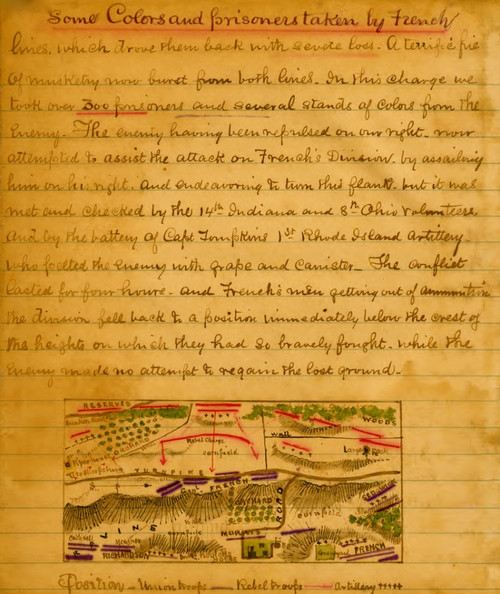 Some Colors and prisoners taken by French
lines, which drove them back with severe loss. A terrific fire
of musketry now burst from both lines. In this charge we
took over 300 prisoners and several stands of colors from the
Enemy. The enemy having been repulsed on our right. now
attempted to assist the attack on French's Division. by assailing
him on his right. and endeavoring to turn this flank. but it was
met and checked by the 14th Indiana and 8th Ohio Volunteers
and by the battery of Capt Tompkins 1st Rhode Island Artillery.
who pelted the enemy with grape and canister_ The conflict
lasted for four hours. and French's men getting out of ammunition
the division fell back to a position immediately below the crest of
the heights on which they had so bravely fought. while the
Enemy made no attempt to regain the lost ground._
RESERVES
WOODS
Rebel Charge
cornfield
Wall
Large Rock
TURNPIKE
FRENCH
ORCHARD
ROAD
cornfield
RAVINE
Wall
cornfield
Caldwell
Meagher
RICHARDSON
FRENCH
Position _ Union troops _ Rebel troops _ artillery